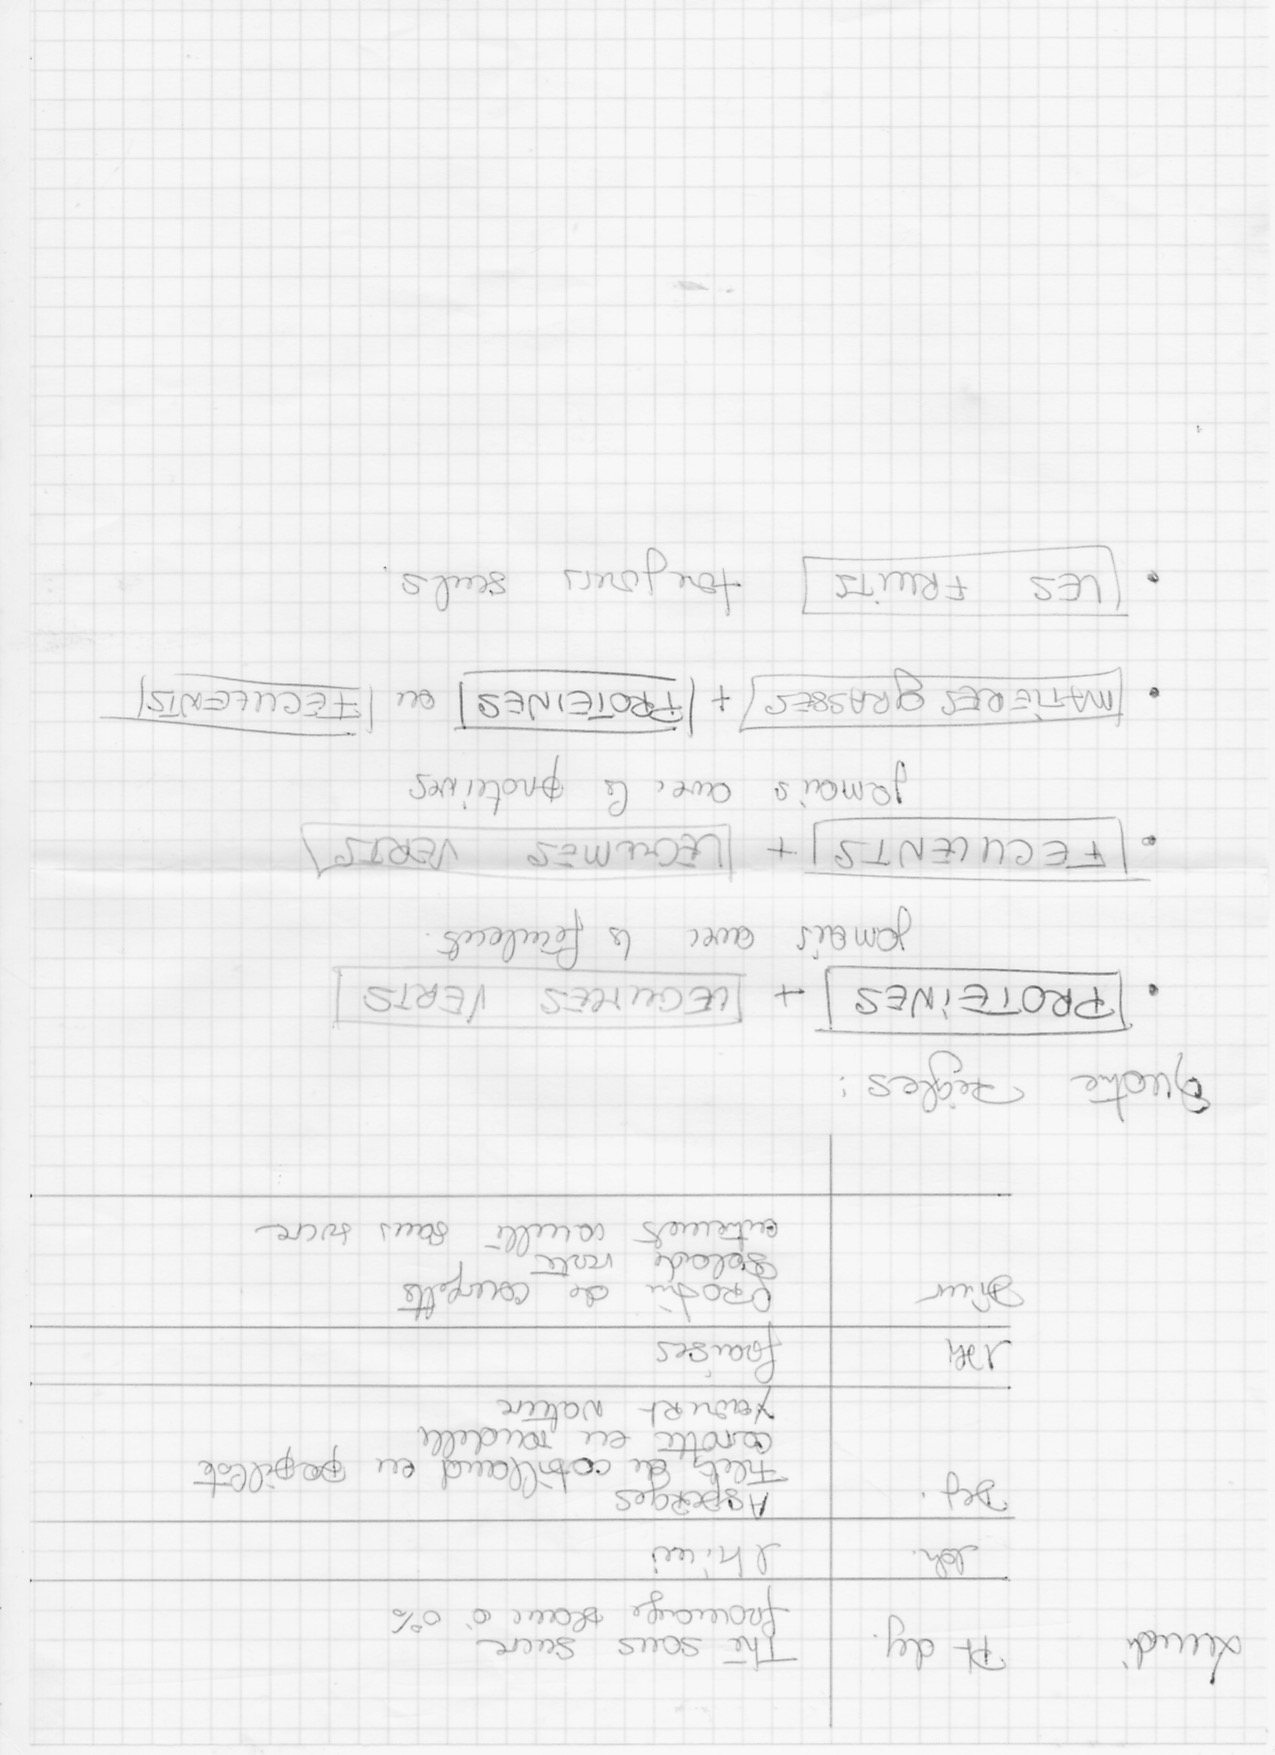 Lundi Pt dej. Thé sans sucre
fromage blanc à 0%
1 kiwi
Dej. Asperges
Filet de cabillaud en papillote
carotte en rondelle
Yaourt nature
fraises
Diner Gratin de courgette
Salade verte
entremet vanille sans sucre
Quatre Règles :
• PROTEINES + LEGUMES VERTS
jamais avec les féculents.
• FECULENTS + LEGUMES VERTS
jamais avec les protéines
• MATIERES GRASSES + PROTEINES ou FECULENTS
• LES FRUITS toujours seuls.